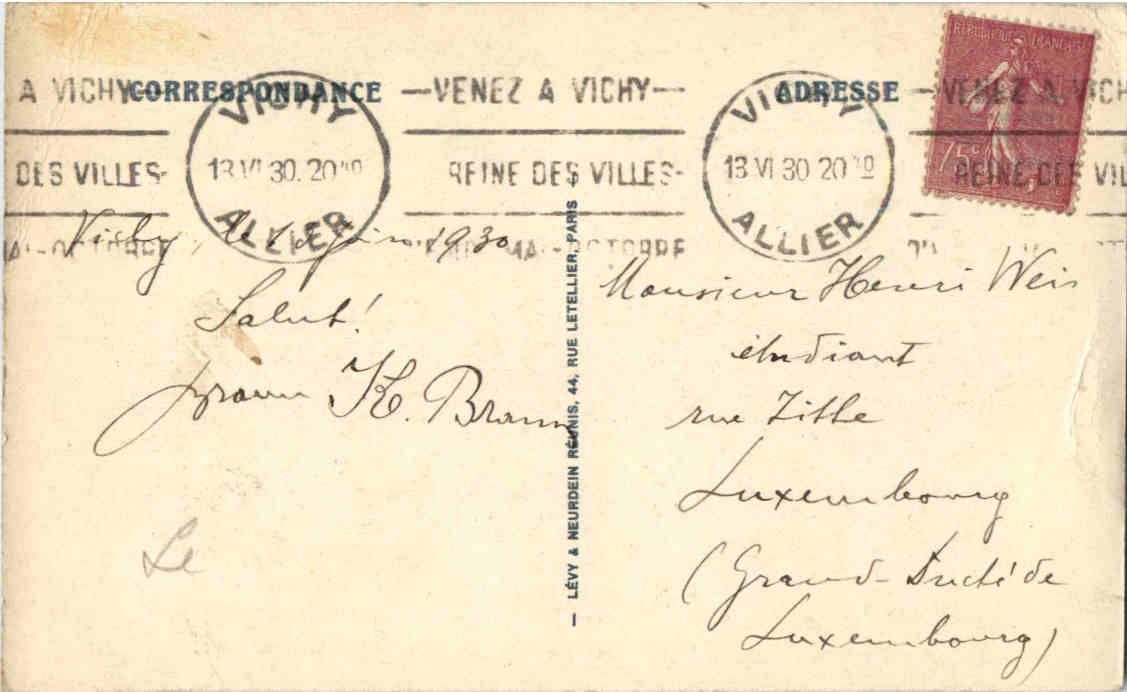 CORRESPONDANCE
ADRESSE
A VICHY
—VENEZ A VICHY—
—VENEZ A VICH
DES VILLES-
REINE DES VILLES-
REINE DES VIL
VICHY
13 VI 30. 20
ALLIER
VICHY
13 VI 30 20
ALLIER
REPUBLIQUE FRANÇAISE
75c
Vichy, le juin 1930
Salut!
K. Braun
— LÉVY & NEURDEIN RÉUNIS, 44, RUE LETELLIER, PARIS
Monsieur Henri Weis
étudiant
rue Zithe
Luxembourg
(Grand-Duché de
Luxembourg)
Le